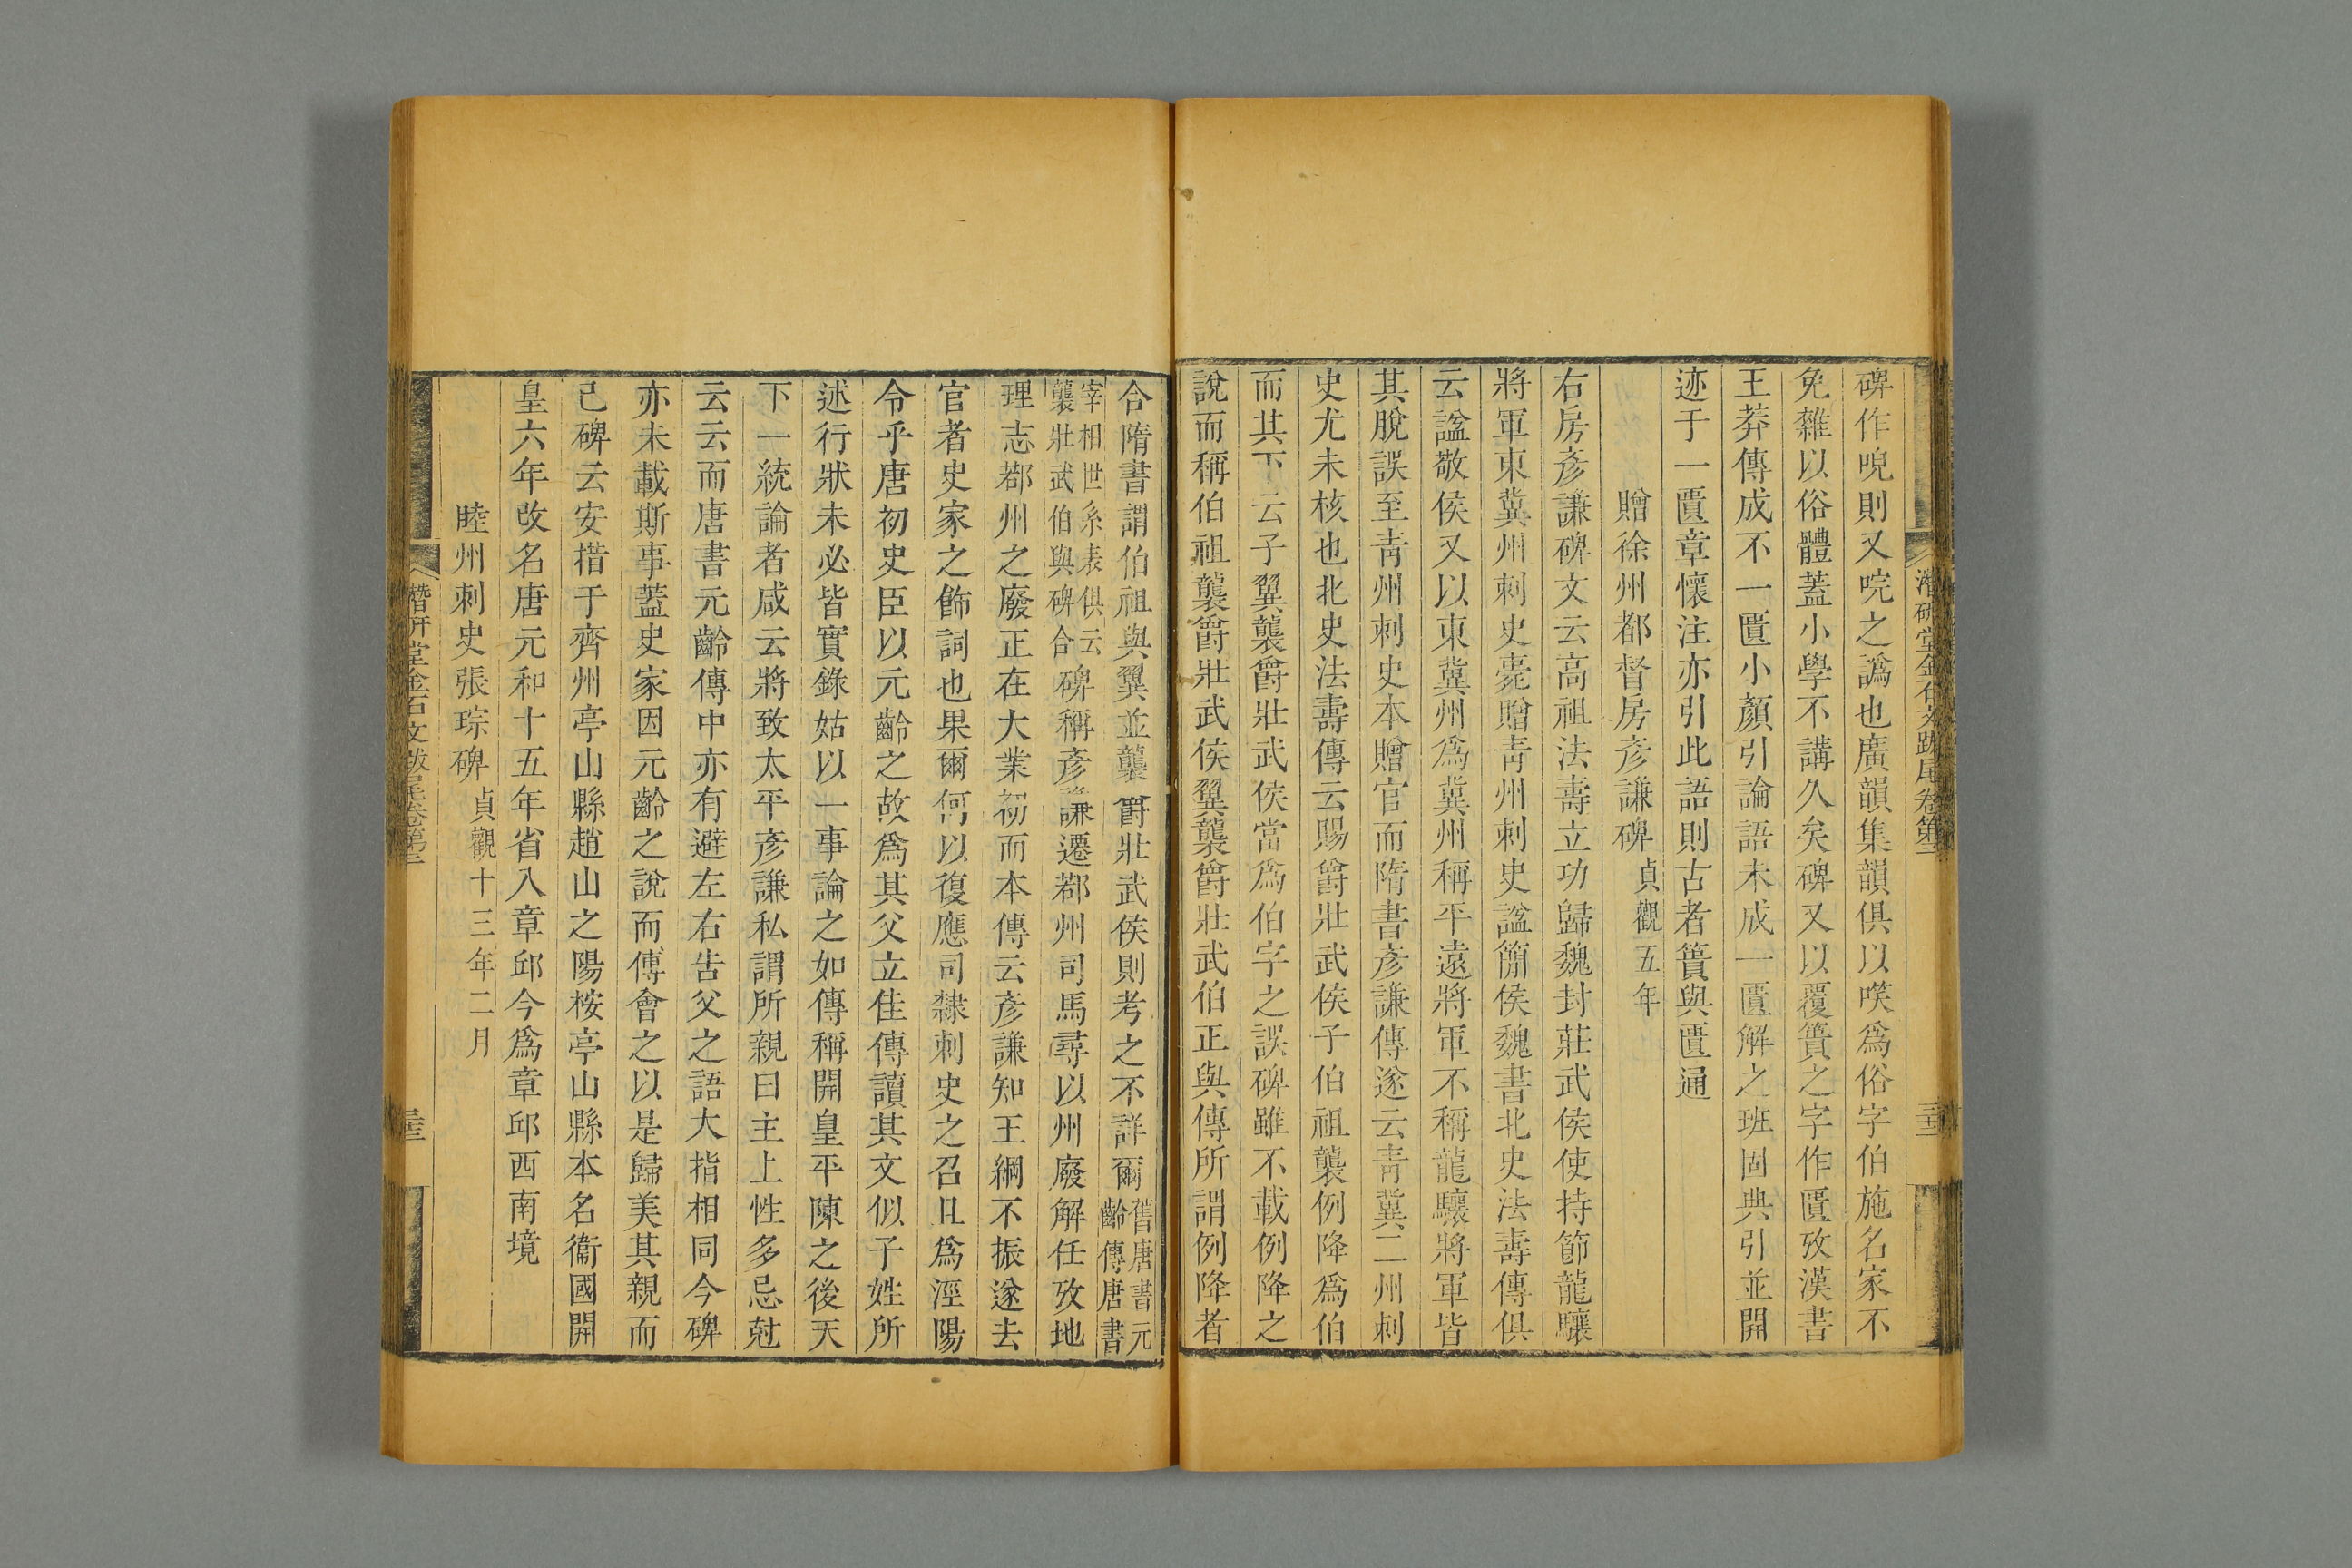 碑作唲則又唍之譌也廣韻集韻俱以㗒爲俗字伯施名家不
免雜以俗體蓋小學不講久矣碑又以覆簣之字作匱攷漢書
王莽傳成不一匱小顏引論語未成一匱解之班固典引並開
迹于一匱章懷注亦引此語則古者簣與匱通
贈徐州都督房彥謙碑貞觀五年
右房彥謙碑文云高祖法壽立功歸魏封莊武侯使持節龍驤
將軍東冀州刺史薨贈青州刺史諡簡侯魏書北史法壽傳俱
云諡敬侯又以東冀州爲冀州稱平遠將軍不稱龍驤將軍皆
其脫誤至青州刺史本贈官而隋書彥謙傳遂云青冀二州刺
史尤未核也北史法壽傳云賜爵壯武侯子伯祖襲例降爲伯
而其下云子翼襲爵壯武侯當爲伯字之誤碑雖不載例降之
說而稱伯祖襲爵壯武侯翼襲爵壯武伯正與傳所謂例降者
合隋書謂伯祖與翼並襲爵壯武侯則考之不詳爾舊唐書元齡傳唐書
宰相世系表俱云襲壯武伯與碑合碑稱彥謙遷鄀州司馬尋以州廢解任攷地
理志鄀州之廢正在大業初而本傳云彥謙知王綱不振遂去
官者史家之飾詞也果爾何以復應司隸刺史之召且爲涇陽
令乎唐初史臣以元齡之故爲其父立佳傳讀其文似子姓所
述行狀未必皆實錄姑以一事論之如傳稱開皇平陳之後天
下一統論者咸云將致太平彥謙私謂所親曰主上性多忌尅
云云而唐書元齡傳中亦有避左右告父之語大指相同今碑
亦未載斯事蓋史家因元齡之說而傅會之以是歸美其親而
已碑云安措于齊州亭山縣趙山之陽桉亭山縣本名衞國開
皇六年改名唐元和十五年省入章邱今爲章邱西南境
睦州刺史張琮碑貞觀十三年二月
潛研堂金石文跋尾卷第三
潛研堂金石文跋尾卷第三